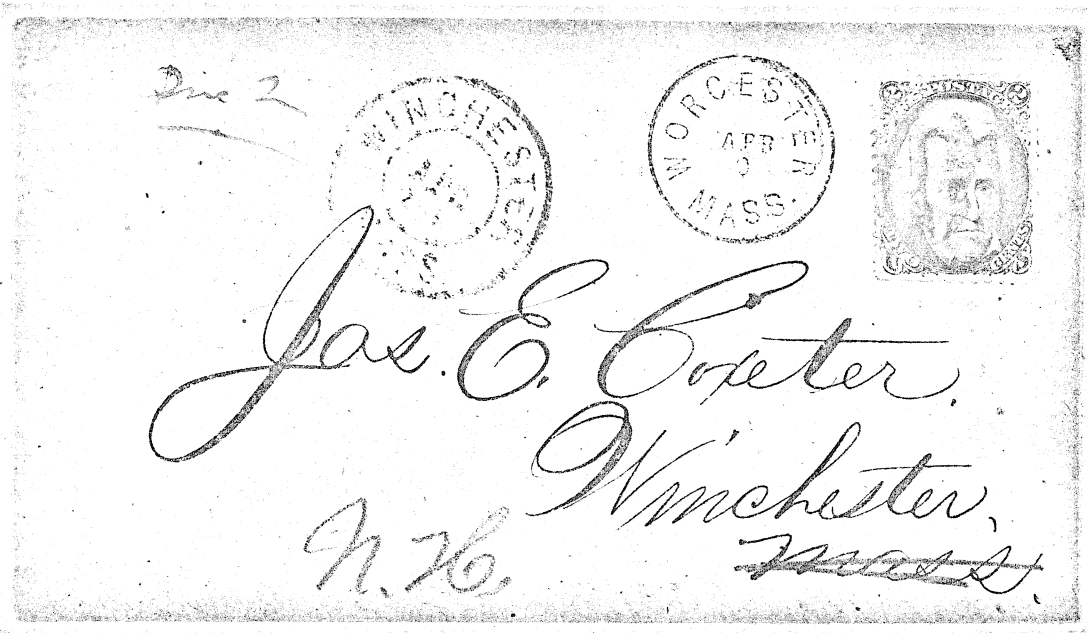 Due 2
WINCHESTER
APR
WORCESTER
APR
9
MASS.
2 2
Jas. E. Coxeter.
Winchester,
Mass.
N. H.